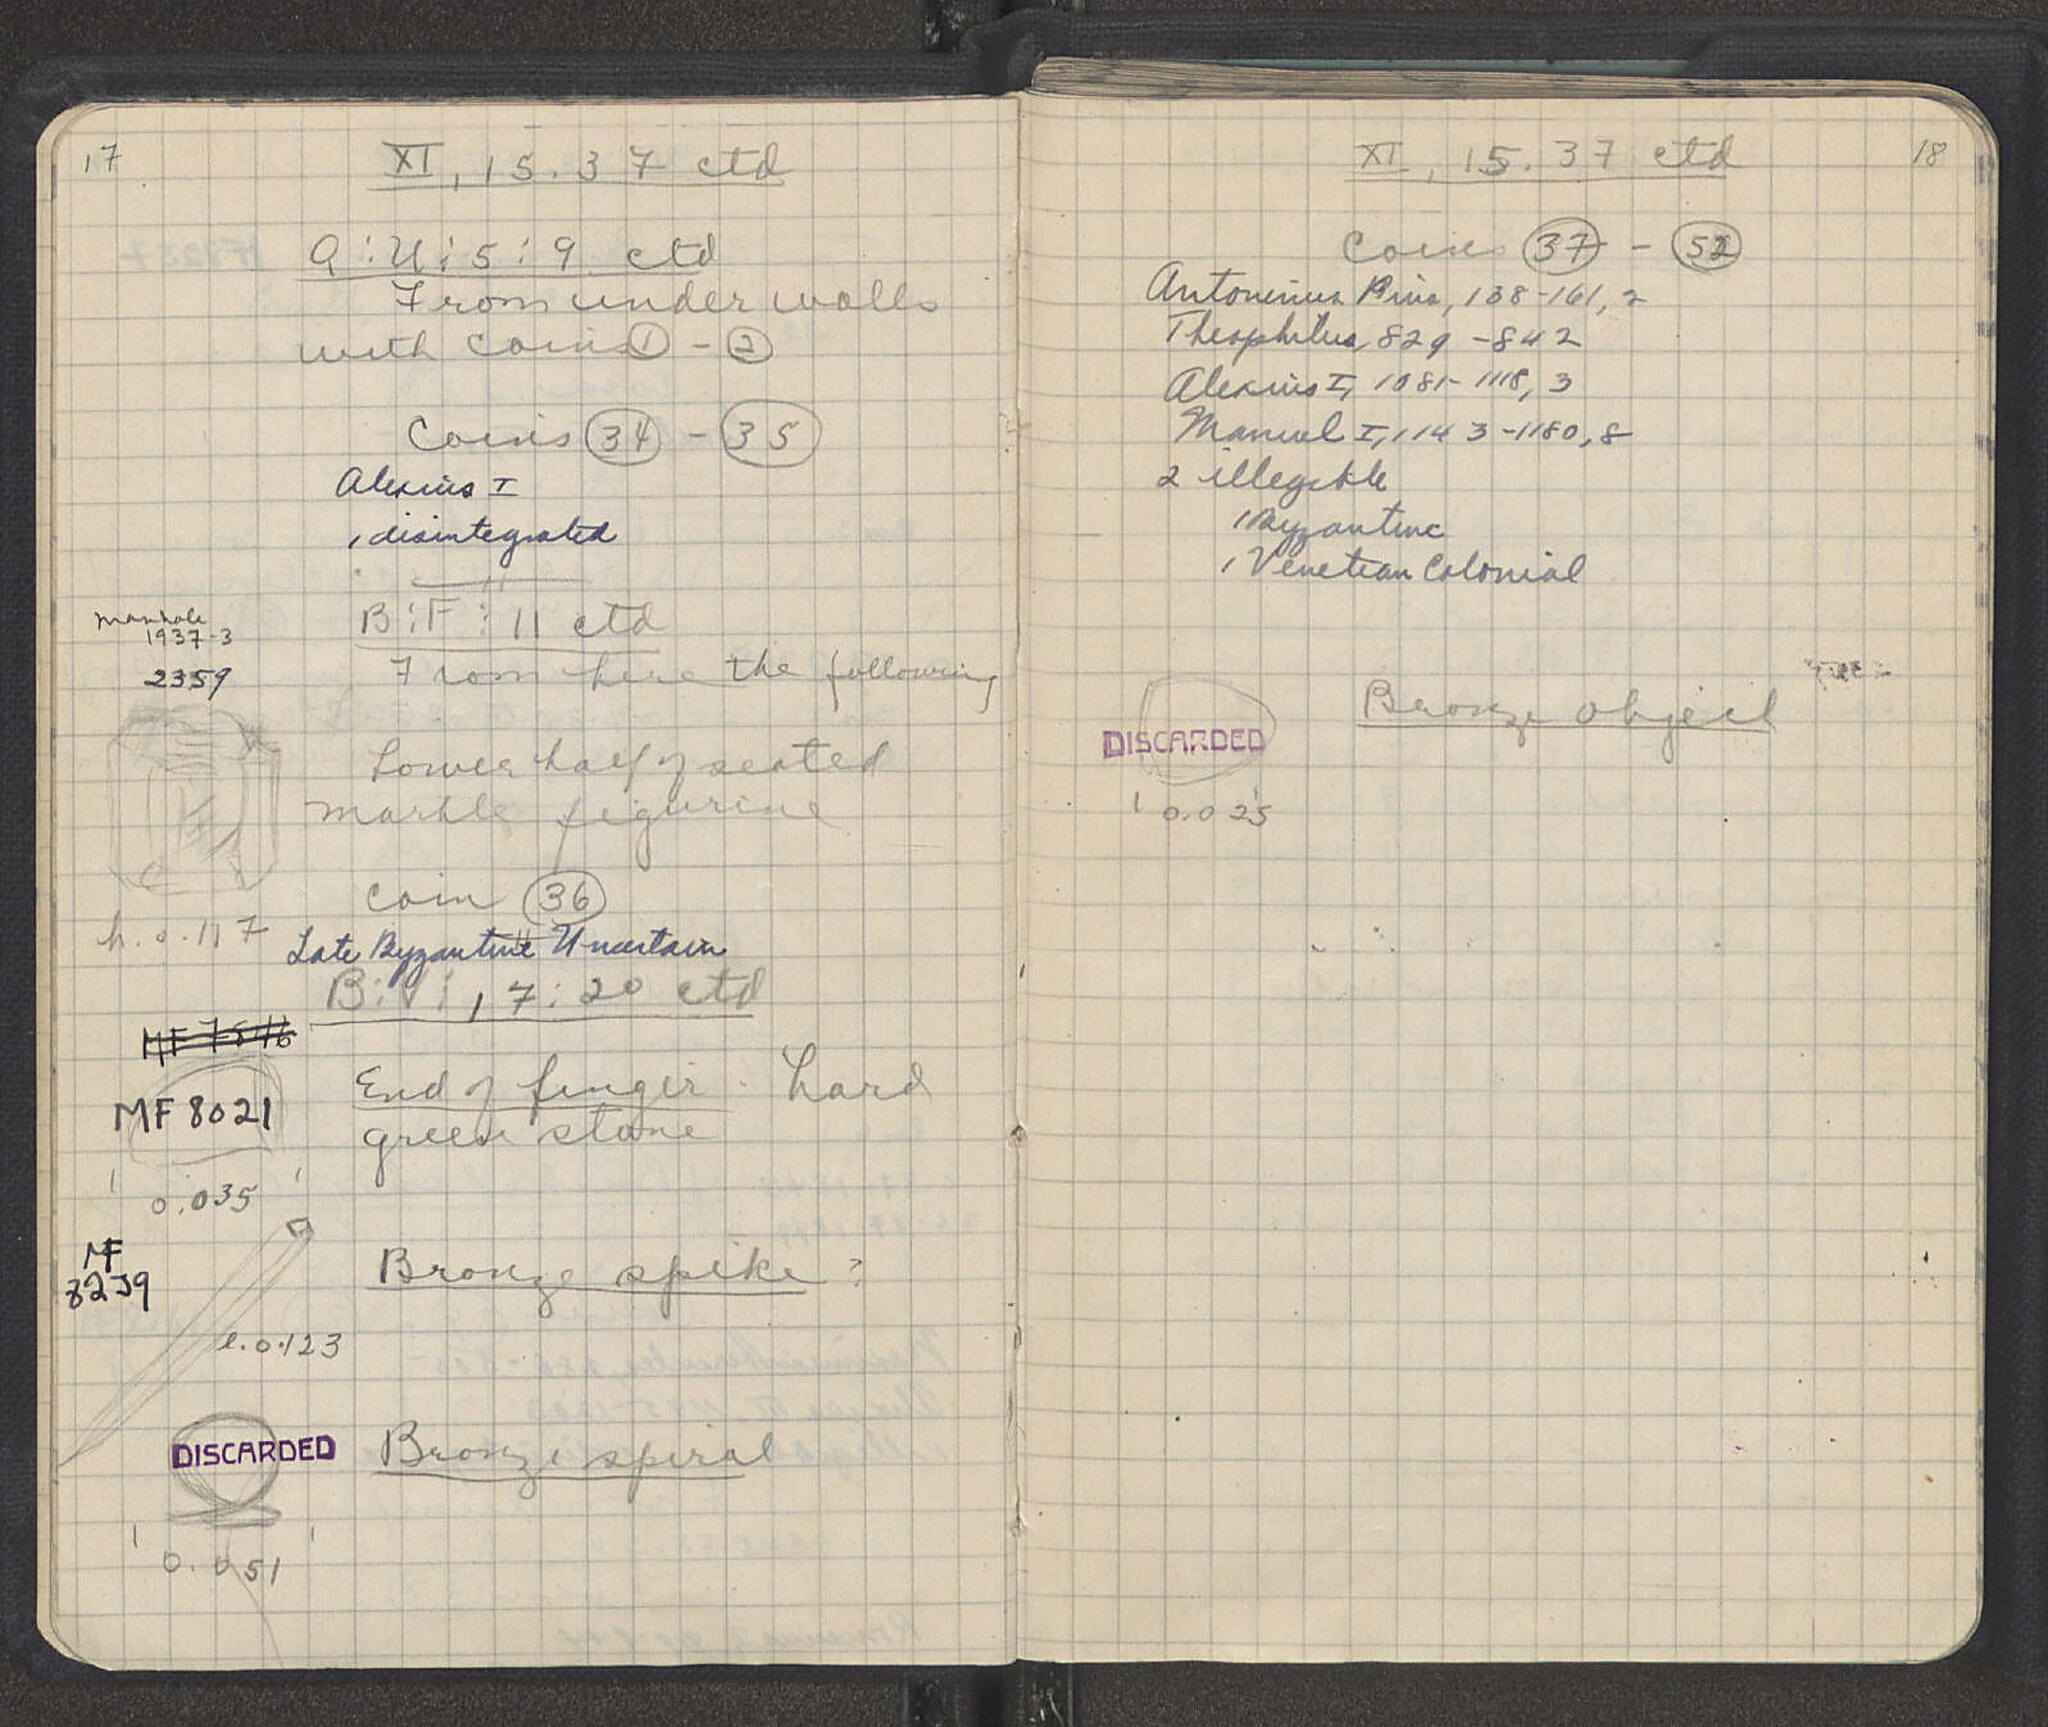 17
XI, 15.37 ctd
A:U:5:9 ctd
From under walls
with coins 1 - 2
Coins 34 - 35
Alexius I
1 disintegrated
B:F:11 ctd
manhole
1937-3
2359
From here the following
Lower half of seated
marble figurine
h. 0.117
Coin 36
Late Byzantine Uncertain
B:V:17:20 ctd
MF 7546
MF 8021
End of finger. hard
green stone
0.035
MF
8259
Bronze spike?
l. 0.123
DISCARDED
Bronze spiral
0.051
XI, 15.37 ctd
18
Coins 37 - 52
Antoninus Pius, 138-161, 2
Theophilus, 829-842
Alexius I, 1081-1118, 3
Manuel I, 1143-1180, 8
2 illegible
1 Byzantine
1 Venetian Colonial
Bronze object
DISCARDED
0.025